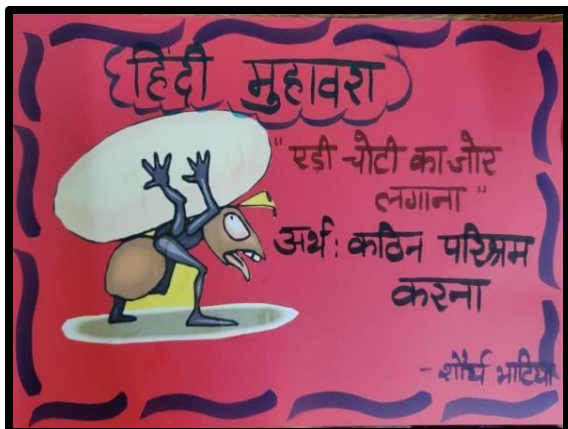 हिंदी मुहावरा
"एड़ी चोटी का जोर
लगाना"
अर्थ: कठिन परिश्रम
करना
- शौर्य भाटिया